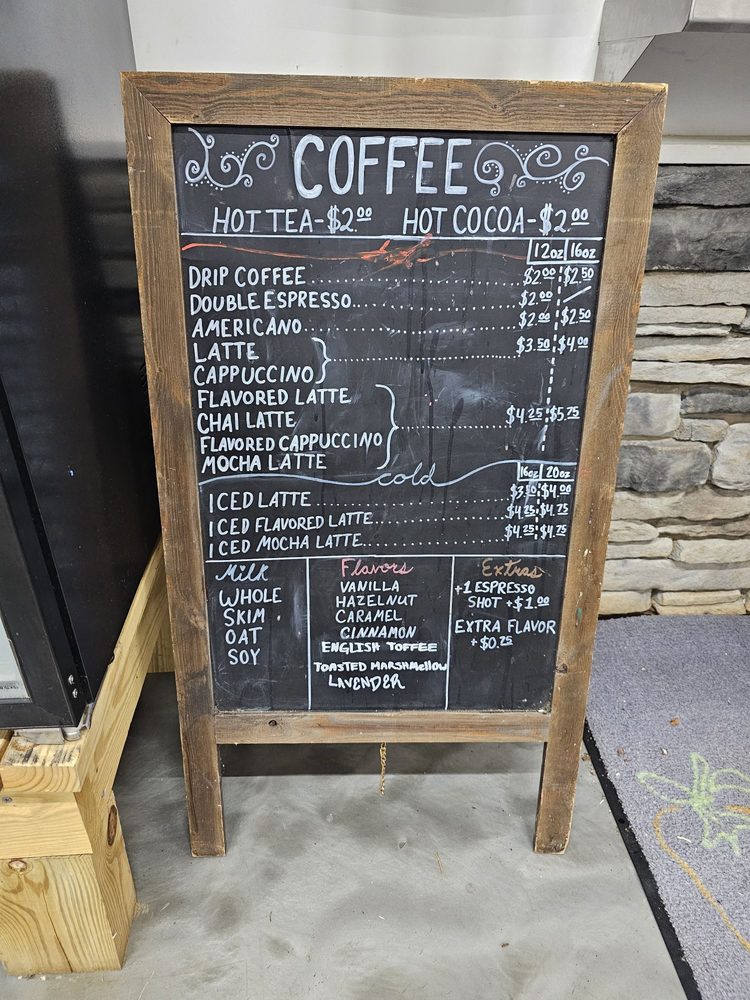 COFFEE
HOT TEA-$2.00 HOT COCOA-$2.00
12oz 16oz
DRIP COFFEE $2.00 $2.50
DOUBLE ESPRESSO $2.00
AMERICANO $2.00 $2.50
LATTE $3.50 $4.00
CAPPUCCINO
FLAVORED LATTE
CHAI LATTE $4.25 $5.25
FLAVORED CAPPUCCINO
MOCHA LATTE
cold 16oz 20oz
ICED LATTE $3.50 $4.00
ICED FLAVORED LATTE $4.25 $4.75
ICED MOCHA LATTE $4.25 $4.75
Milk
WHOLE
SKIM
OAT
SOY
Flavors
VANILLA
HAZELNUT
CARAMEL
CINNAMON
ENGLISH TOFFEE
TOASTED MARSHMEllOW
LAVENDER
Extras
+1 ESPRESSO
SHOT +$1.00
EXTRA FLAVOR
+$0.75